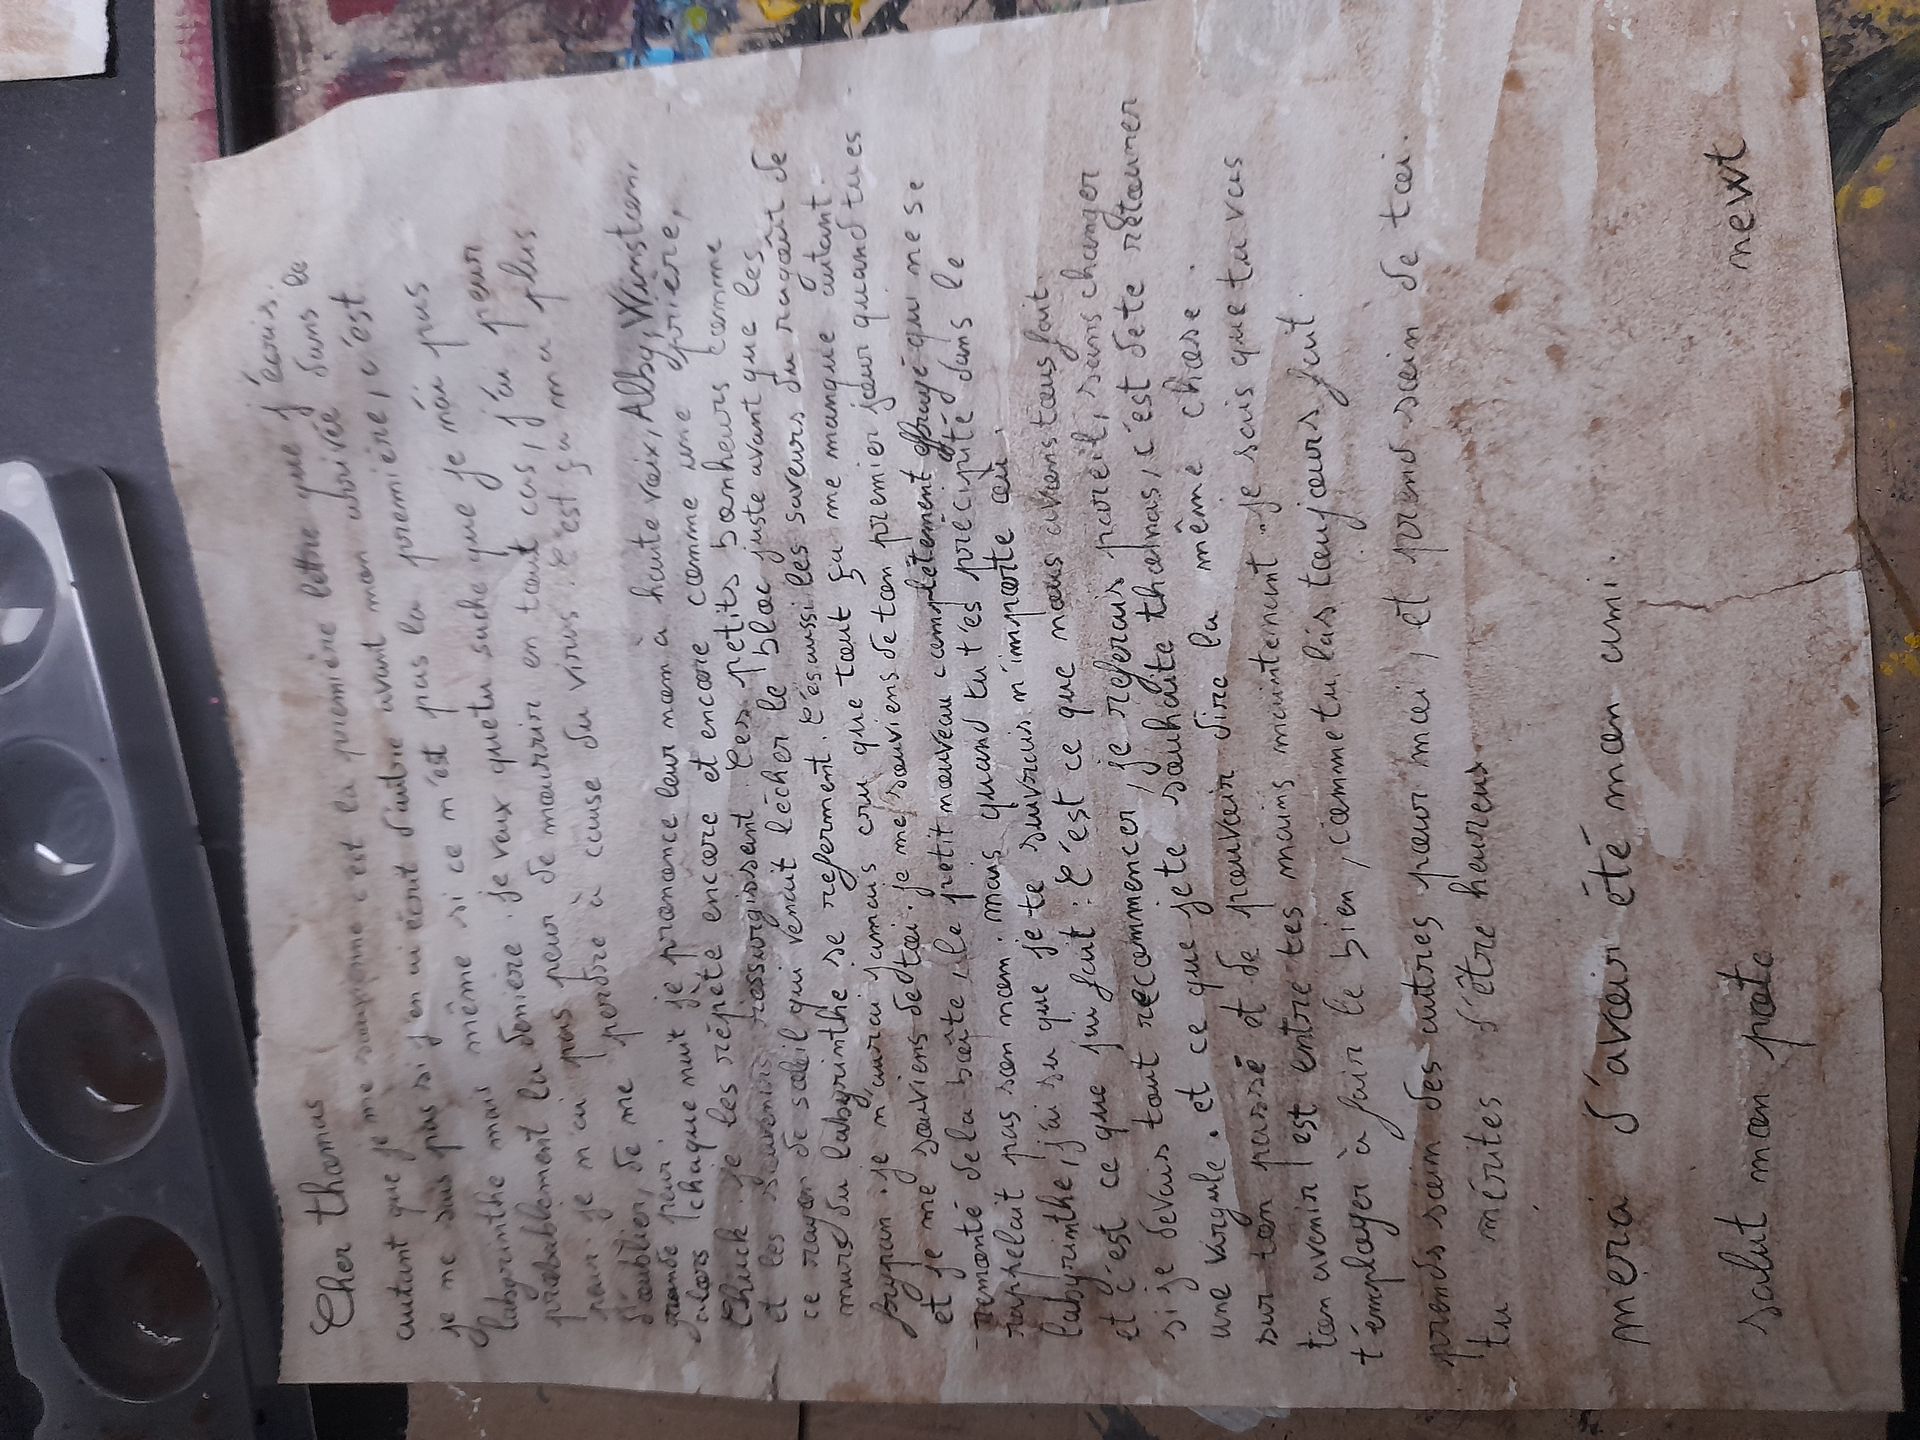 Cher thomas
autant que je me souvienne c'est la première lettre que j'écris.
je ne sais pas si j'en ai écrit d'autre avant mon arrivée dans le
labyrinthe mais même si ce n'est pas la première, c'est
probablement la dernière. je veux que tu sache que je n'ai pas
peur. je n'ai pas peur de mourrir en tout cas, j'ai peur
d'oublier, de me perdre à cause du virus. c'est ça m'a plus
grande peur.
alors chaque nuit je prononce leur nom à haute voix, Alby, Winston,
Chuck je les répète encore et encore comme une prière,
et les souvenirs ressurgissent. Ces petits bonheurs comme
ce rayon de soleil qui venait lécher le bloc juste avant que les
murs du labyrinthe se referment. C'es aussi les saveurs du ragoût de
frypan. je n'aurai jamais cru que tout ça me manque autant.
et je me souviens de toi. je me souviens de ton premier jour quand tu es
remonté de la boîte, le petit nouveau complètement effrayé qui ne se
rappelait pas son nom. mais quand tu t'es précipité dans le
labyrinthe, j'ai su que je te suivrais n'importe où.
et c'est ce que j'ai fait. C'est ce que nous avons tous fait.
si je devais tout recommencer, je referais pareil, sans changer
une virgule. et ce que je te souhaite thomas, c'est de te retourner
sur ton passé et de pouvoir dire la même chose.
ton avenir est entre tes mains maintement. je sais que tu vas
t'employer à fair le bien, comme tu l'as toujours fait.
prends soin des autres pour moi, et prend soin de toi.
tu mérites d'être heureux
merci d'avoir été mon ami.
salut mon pote
newt